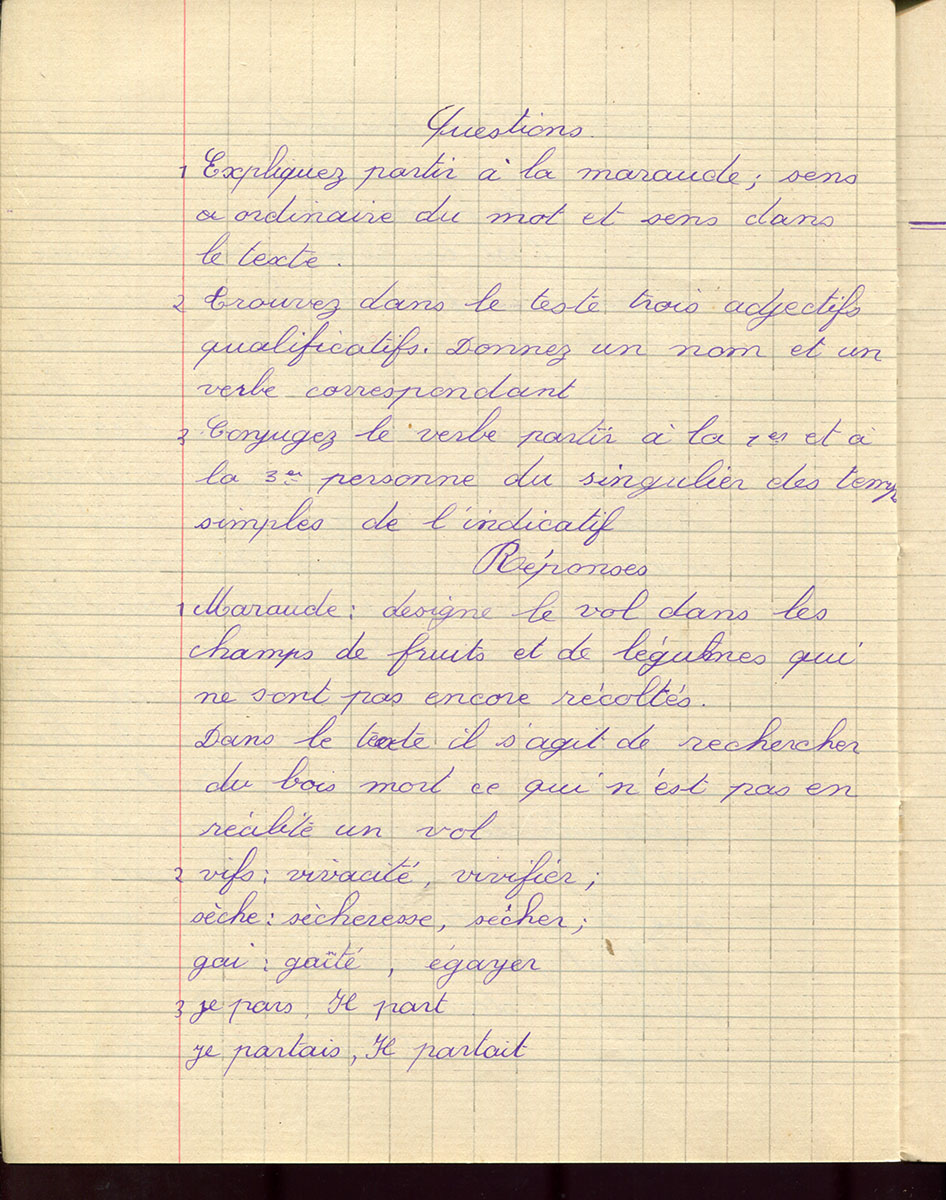 Questions.
1 Expliquez partir à la maraude; sens
a ordinaire du mot et sens dans
le texte.
2 Trouvez dans le teste trois adjectifs
qualificatifs. Donnez un nom et un
verbe correspondant
3 Conjugez le verbe partir à la 1er et à
la 3em personne du singulier des temps
simples de l'indicatif
Réponses
1 Maraude: designe le vol dans les
champs de fruits et de légumes qui
ne sont pas encore récoltés.
Dans le texte il s'agit de rechercher
du bois mort ce qui n'est pas en
réalité un vol
2 vifs: vivacité, vivifier;
sèche: sècheresse, sècher;
gai: gaïté, égayer
3 je pars, Il part
je partais, Il partait